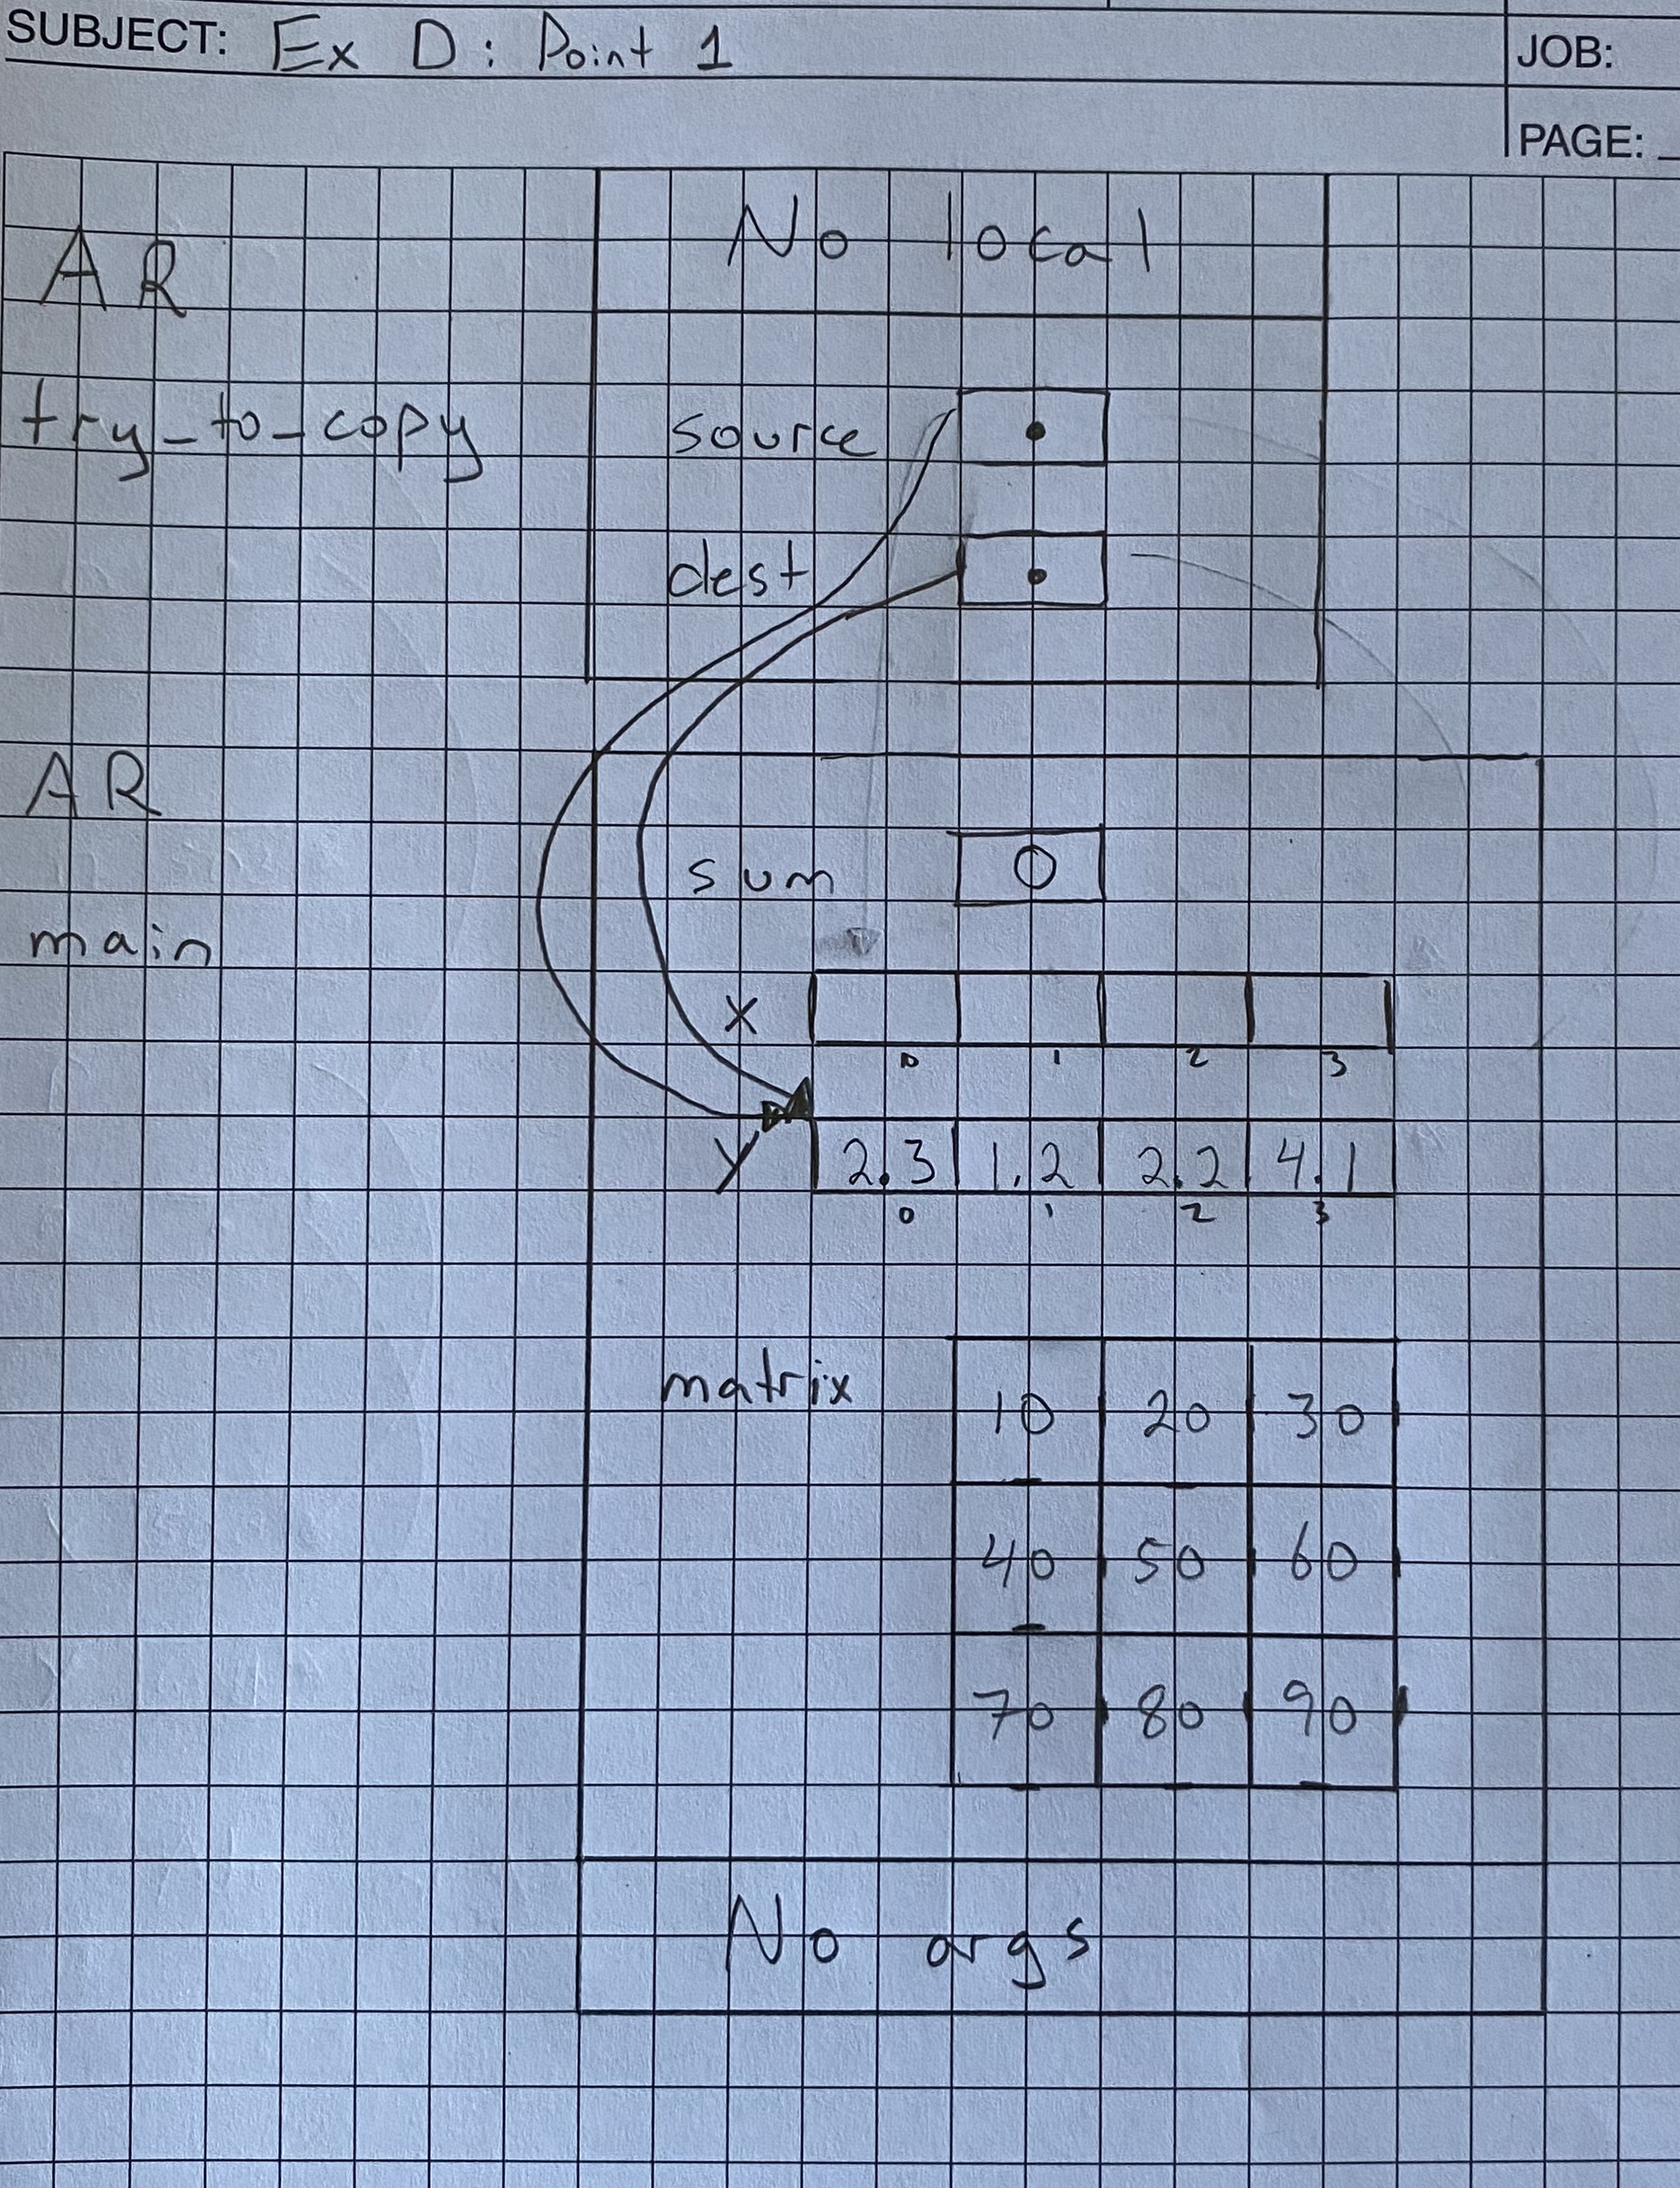 SUBJECT: Ex D: Point 1
JOB:
PAGE:
AR
No local
try_to_copy
source
dest
AR
sum 0
main
x
0 1 2 3
y 2.3 1.2 2.2 4.1
0 1 2 3
matrix 10 20 30
40 50 60
70 80 90
No args